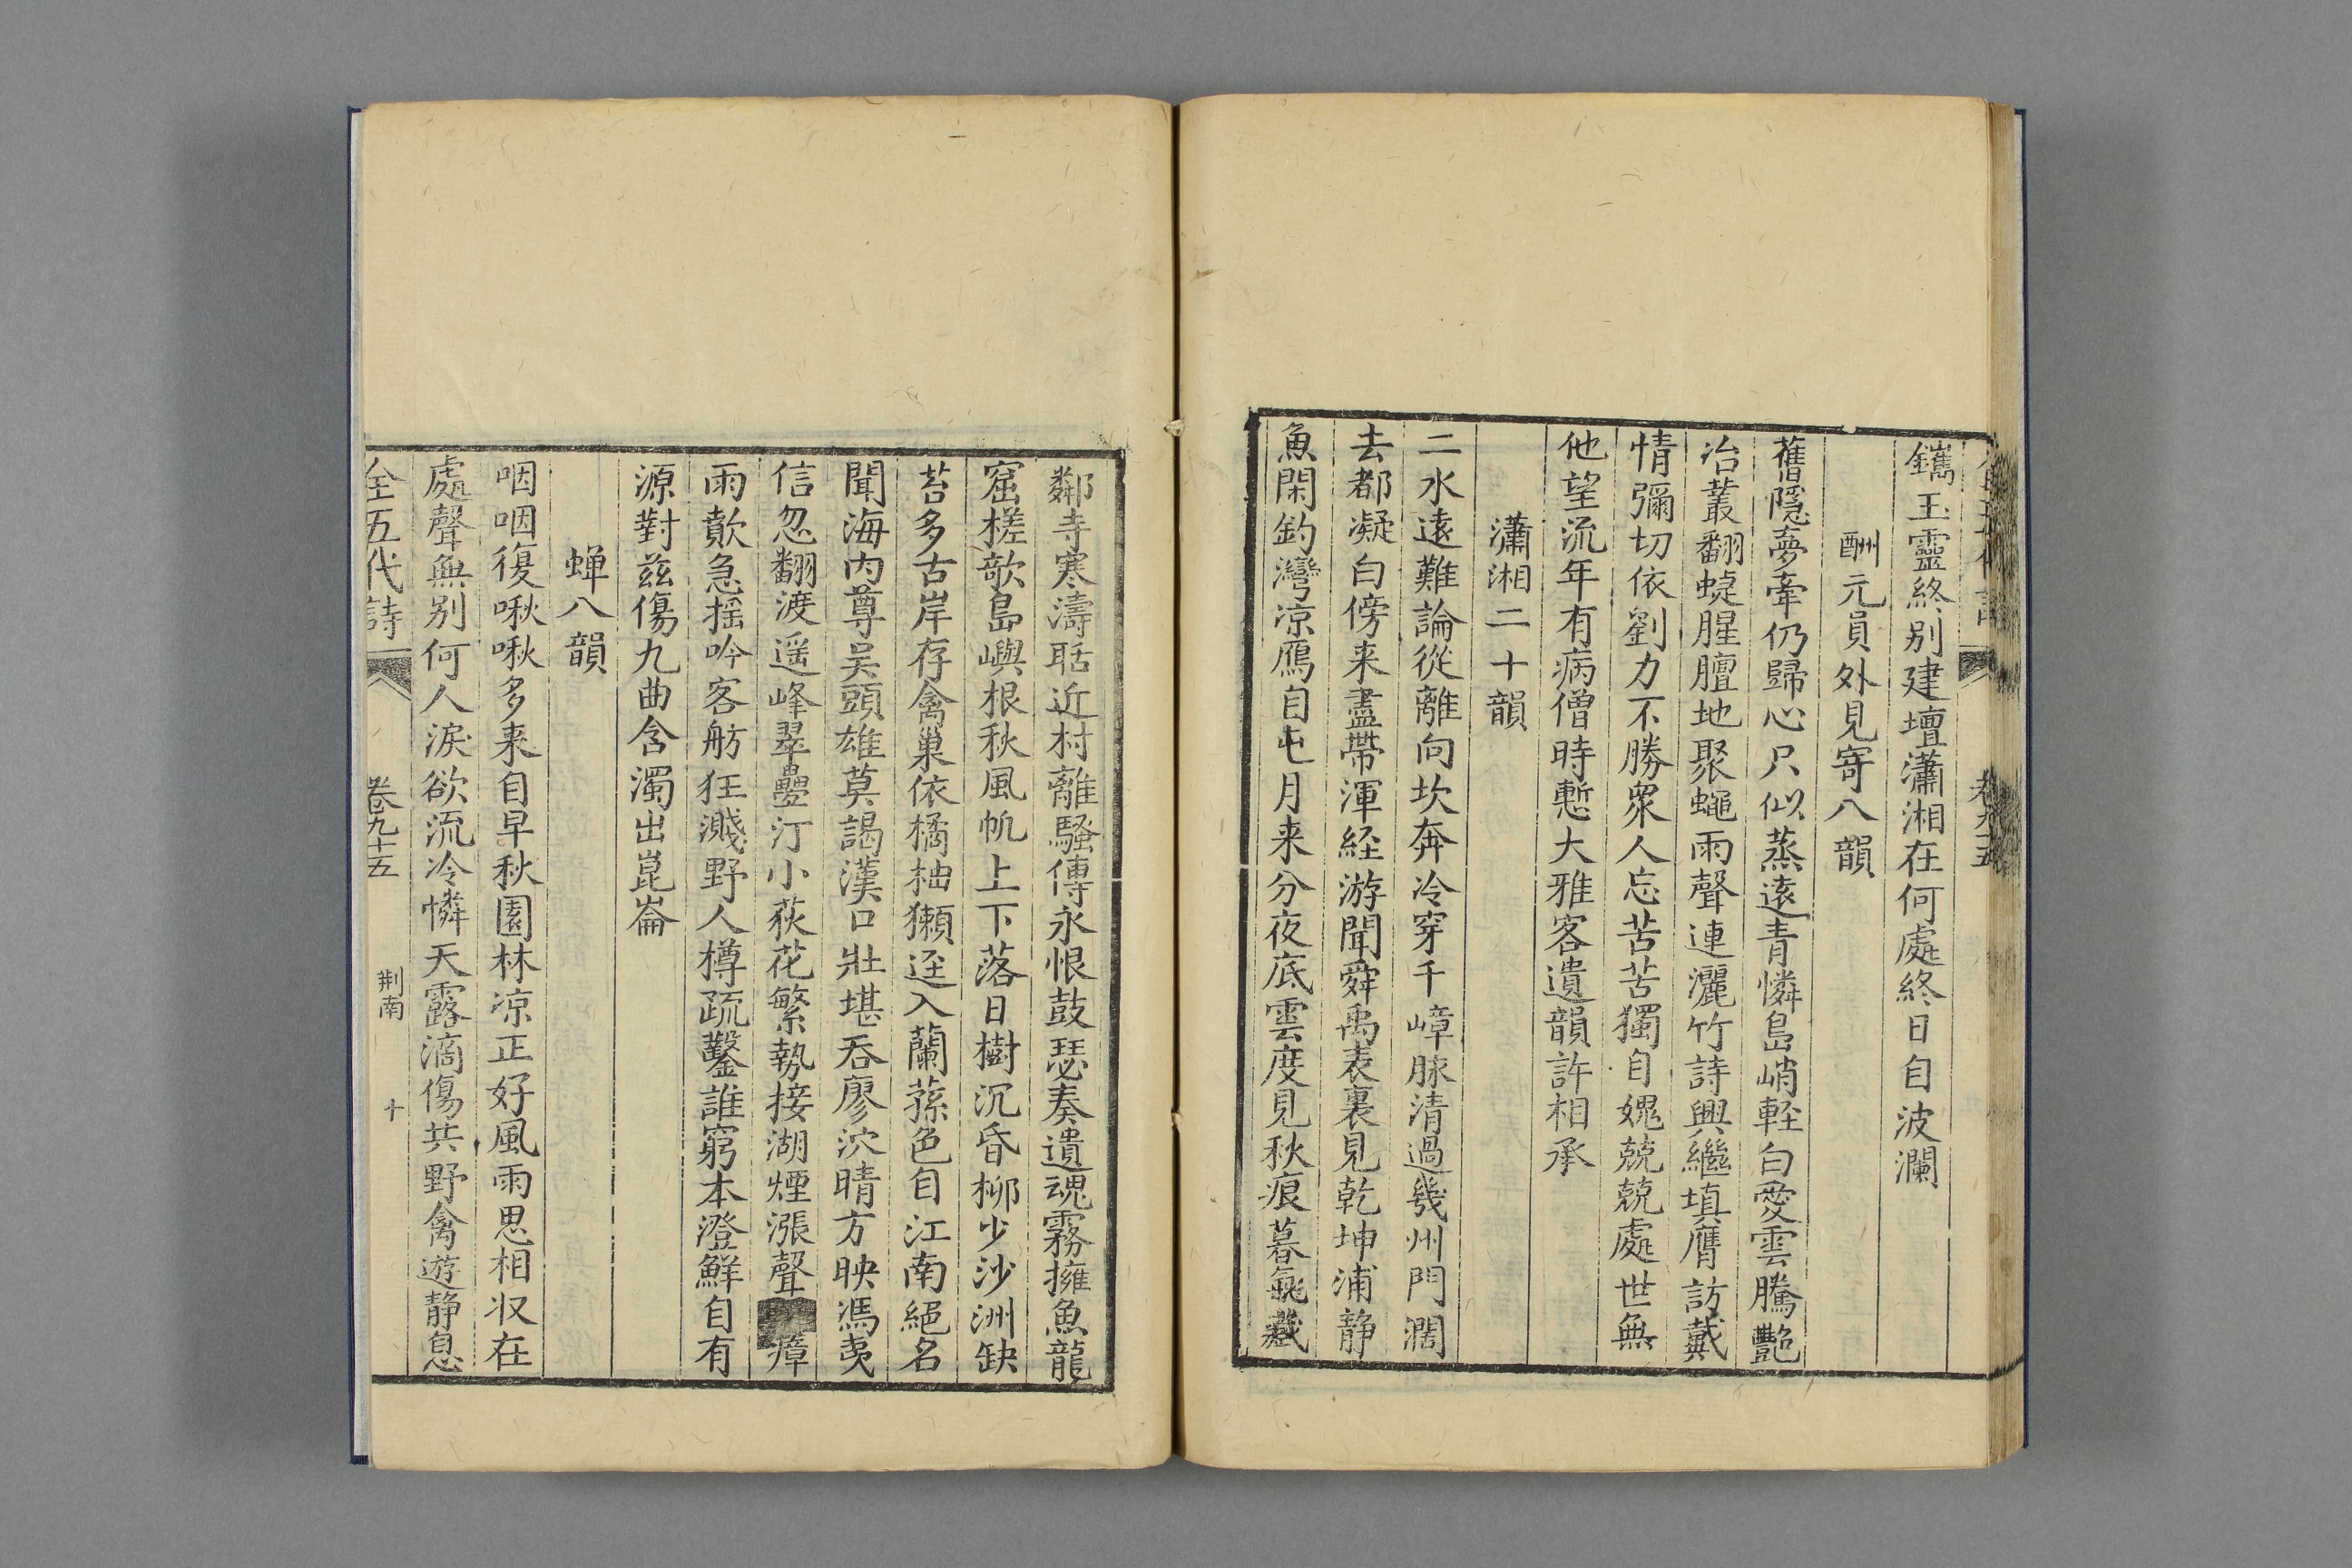 鑴玉靈終別建壇瀟湘在何處終日自波瀾
酬元員外見寄八韻
舊隱夢牽仍歸心只似蒸遠青憐島峭輕白愛雲騰艷
冶叢翻蜨腥膻地聚蠅雨聲連灑竹詩興繼填膺訪戴
情彌切依劉力不勝衆人忘苦苦獨自媿兢兢處世無
他望流年有病僧時慙大雅客遺韻許相承
瀟湘二十韻
二水遠難論從離向坎奔冷穿千嶂脉清過幾州門濶
去都凝白傍来盡帶渾経游聞舜禹表裏見乾坤浦静
魚閑釣灣凉鴈自屯月来分夜底雲度見秋痕暮氣藏
鄰寺寒濤聒近村離騷傳永恨鼓瑟奏遺魂霧擁魚龍
窟槎欹島嶼根秋風帆上下落日樹沉昏柳少沙洲缺
苔多古岸存禽巢依橘柚獺逕入蘭蓀色自江南絕名
聞海内尊吴頭雄莫謁漢口壯堪吞廖泬晴方映馮夷
信忽翻渡遥峰翠疊汀小荻花繁勢接湖煙漲聲瘴
雨歕急摇吟客舫狂濺野人樽疏鑿誰窮本澄鮮自有
源對兹傷九曲含濁出崑崙
蝉八韻
咽咽復啾啾多来自早秋園林凉正好風雨思相収在
處聲無别何人淚欲流冷憐天露滴傷共野禽遊静息
全五代詩 卷九十五 荆南 十